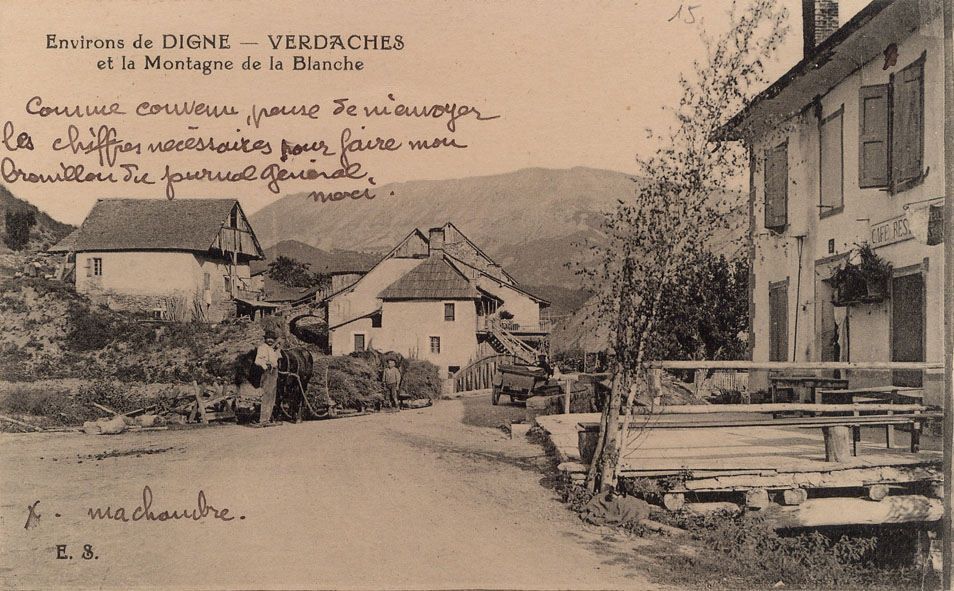 15
Environs de DIGNE — VERDACHES
et la Montagne de la Blanche
Comme convenu, pense de m'envoyer
les chiffres nécéssaires pour faire mon
brouillon du journal Général,
merci.
CAFE RES
X. ma chambre.
E. S.